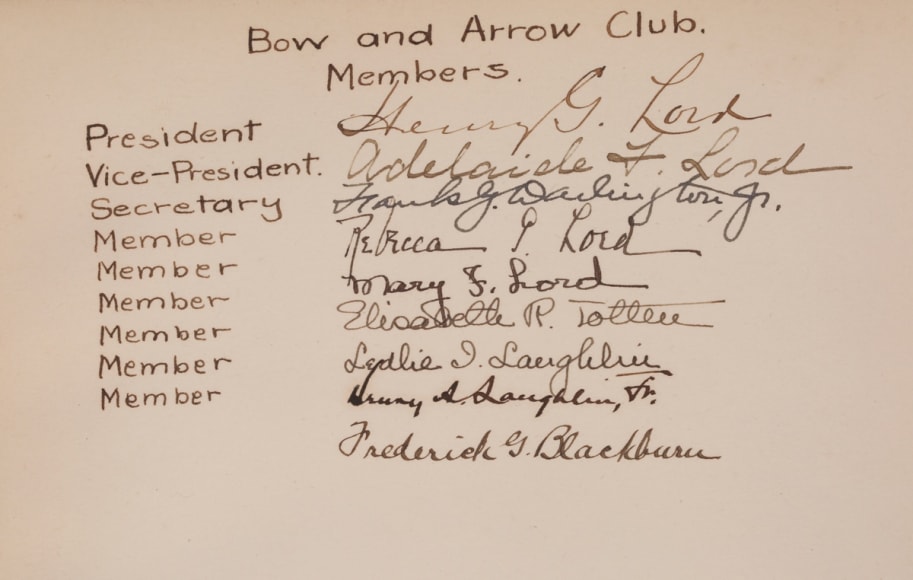 Bow and Arrow Club.
Members.
President Henry G. Lord
Vice-President. Adelaide F. Lord
Secretary Frank G. Darlington, Jr.
Member Rebecca P. Lord
Member Mary F. Lord
Member Elisabeth R. Totten
Member Ledlie I. Laughlin
Member Henry A. Laughlin, Jr.
Member
Frederick G. Blackburn